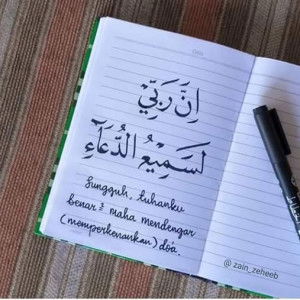 اِنَّ رَبِّيْ
لَسَمِيْعُ الدُّعَاۤءِ
Sungguh, tuhanku
benar² maha mendengar
(memperkenankan) do'a.
@ zain_zeheeb